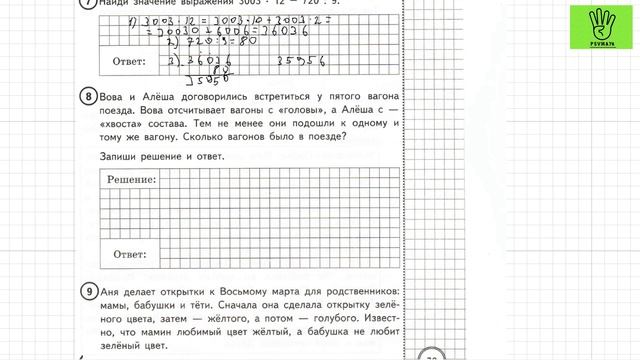 7 Найди значение выражения 3003 · 12 − 720 : 9.
1) 3003 · 12 = 3003 · 10 + 3003 · 2 =
= 30030 + 6006 = 36036
2) 720 : 9 = 80
Ответ: 3) 36036 35956
80
35956
PSVMAJA
8 Вова и Алёша договорились встретиться у пятого вагона
поезда. Вова отсчитывает вагоны с «головы», а Алёша с —
«хвоста» состава. Тем не менее они подошли к одному и
тому же вагону. Сколько вагонов было в поезде?
Запиши решение и ответ.
Решение:
Ответ:
9 Аня делает открытки к Восьмому марта для родственников:
мамы, бабушки и тёти. Сначала она сделала открытку зелё-
ного цвета, затем — жёлтого, а потом — голубого. Извест-
но, что мамин любимый цвет жёлтый, а бабушка не любит
зелёный цвет.